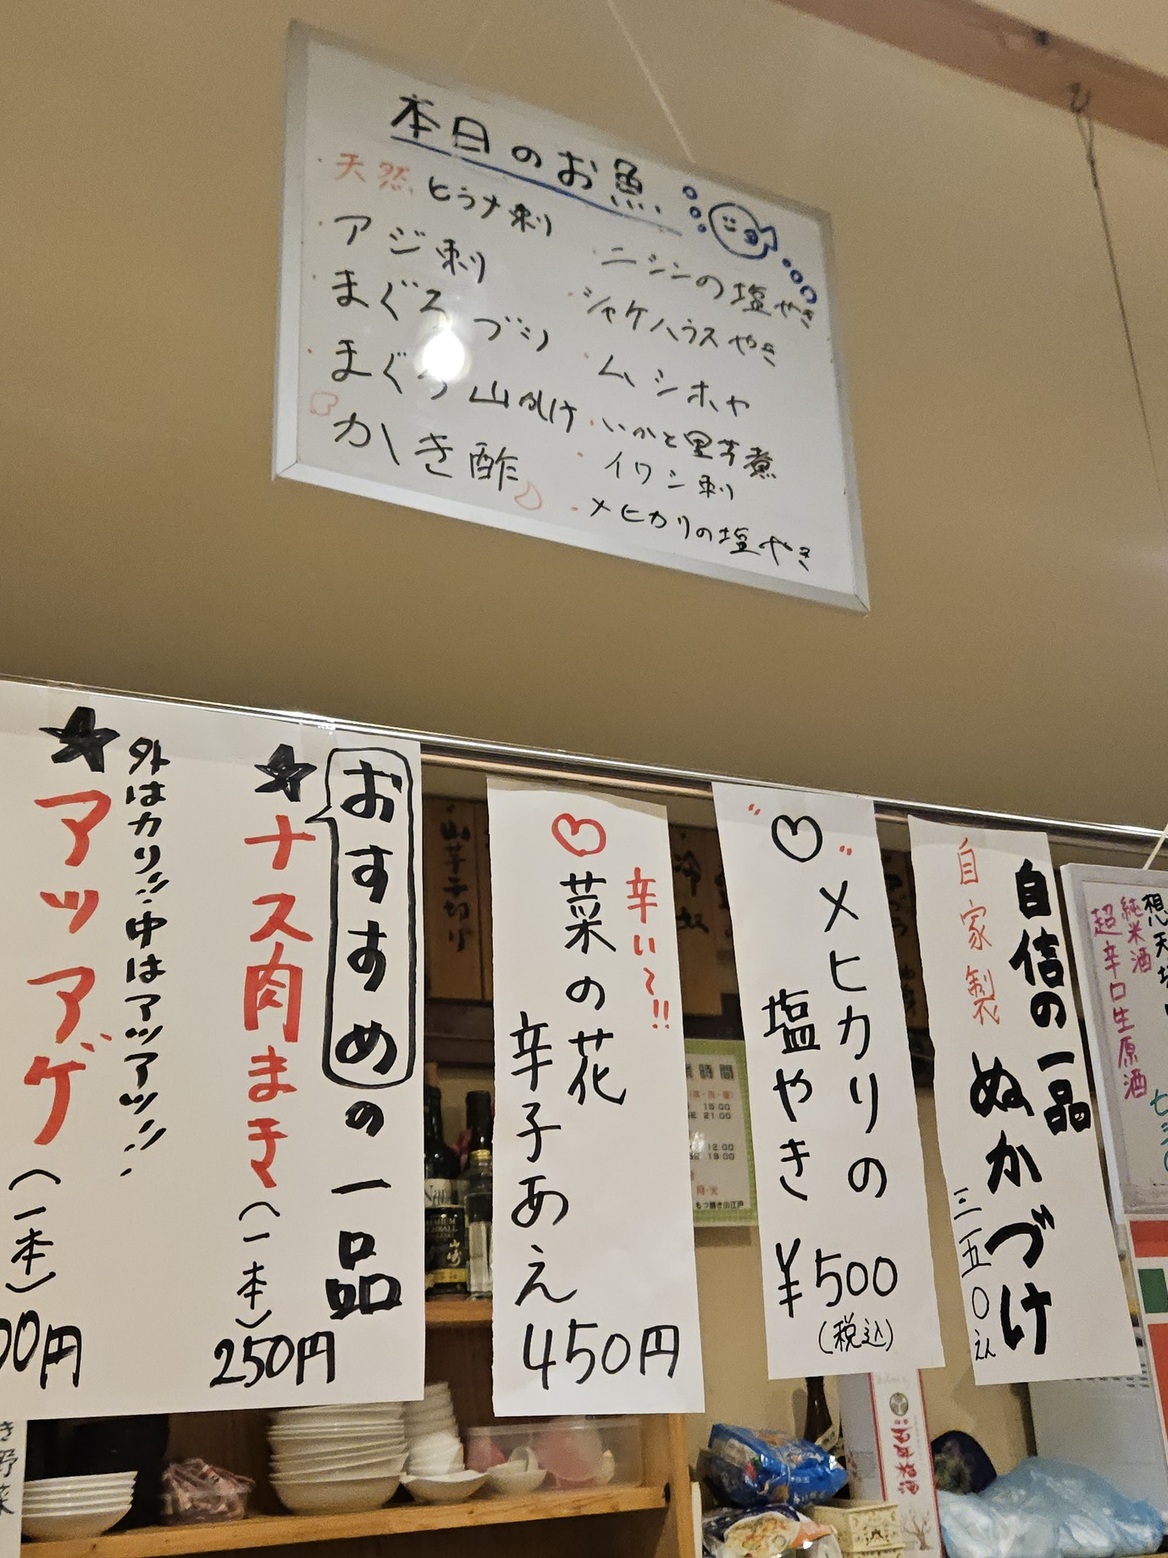 本日のお魚
天然ヒラメ刺
アジ刺
まぐろブツ
まぐろ山かけ
かき酢
ニシンの塩やき
シャケハラスやき
ムシホヤ
いかと里芋煮
イワシ刺
メヒカリの塩やき
自信の一品
自家製
ぬかづけ
三五〇えん
メヒカリの
塩やき
¥500
(税込)
辛い〜!!
菜の花
辛子あえ
450円
おすすめの一品
ナス肉まき(一本)
250円
外はカリッ!!中はアツアツ!!
アツアゲ(一本)
00円
純米酒
超辛口生原酒
山芋千切り
冷奴
き野菜